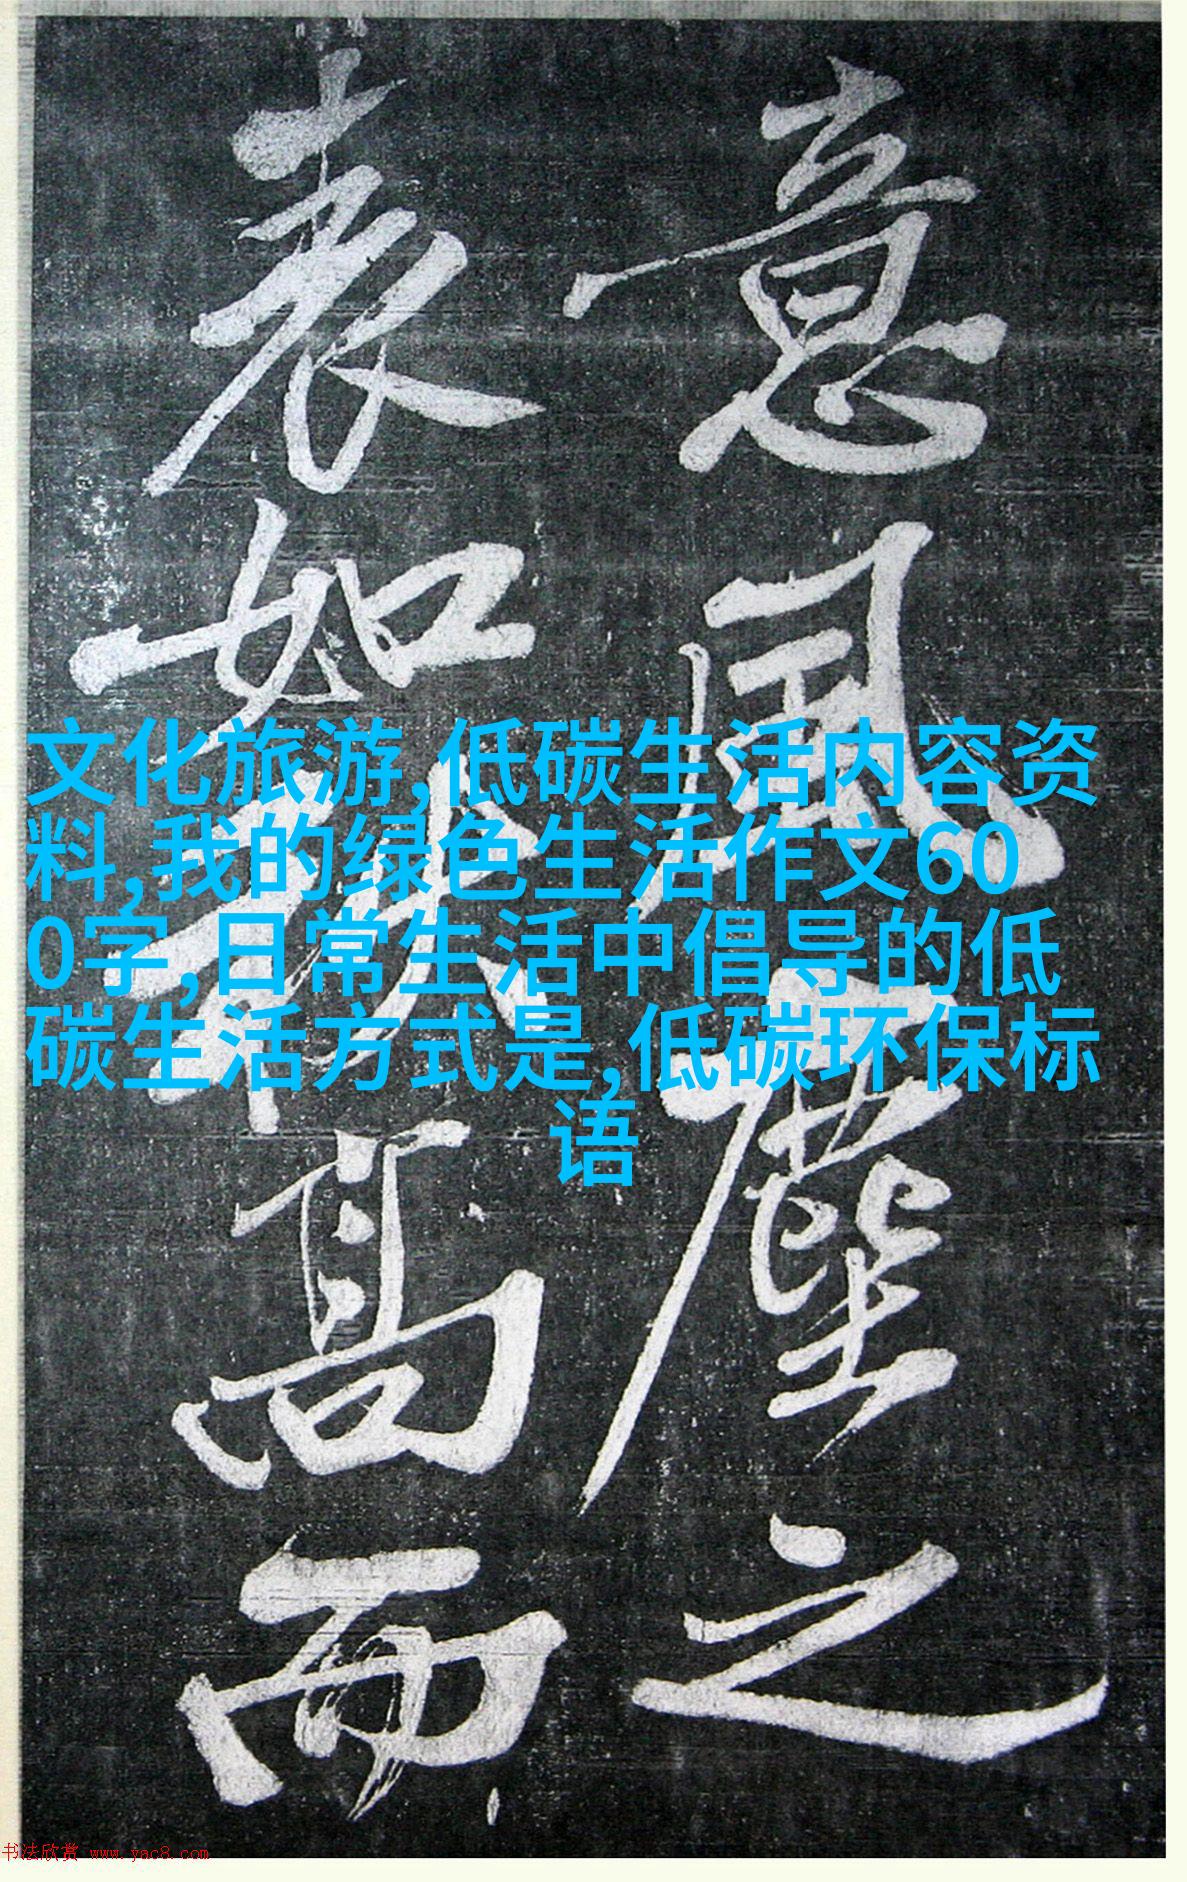 意風塵之
表如秋高而
文化旅游,低碳生活内容资
料,我的绿色生活作文60
0字,日常生活中倡导的低
碳生活方式是,低碳环保标
语
书法欣赏 www.yac8.com